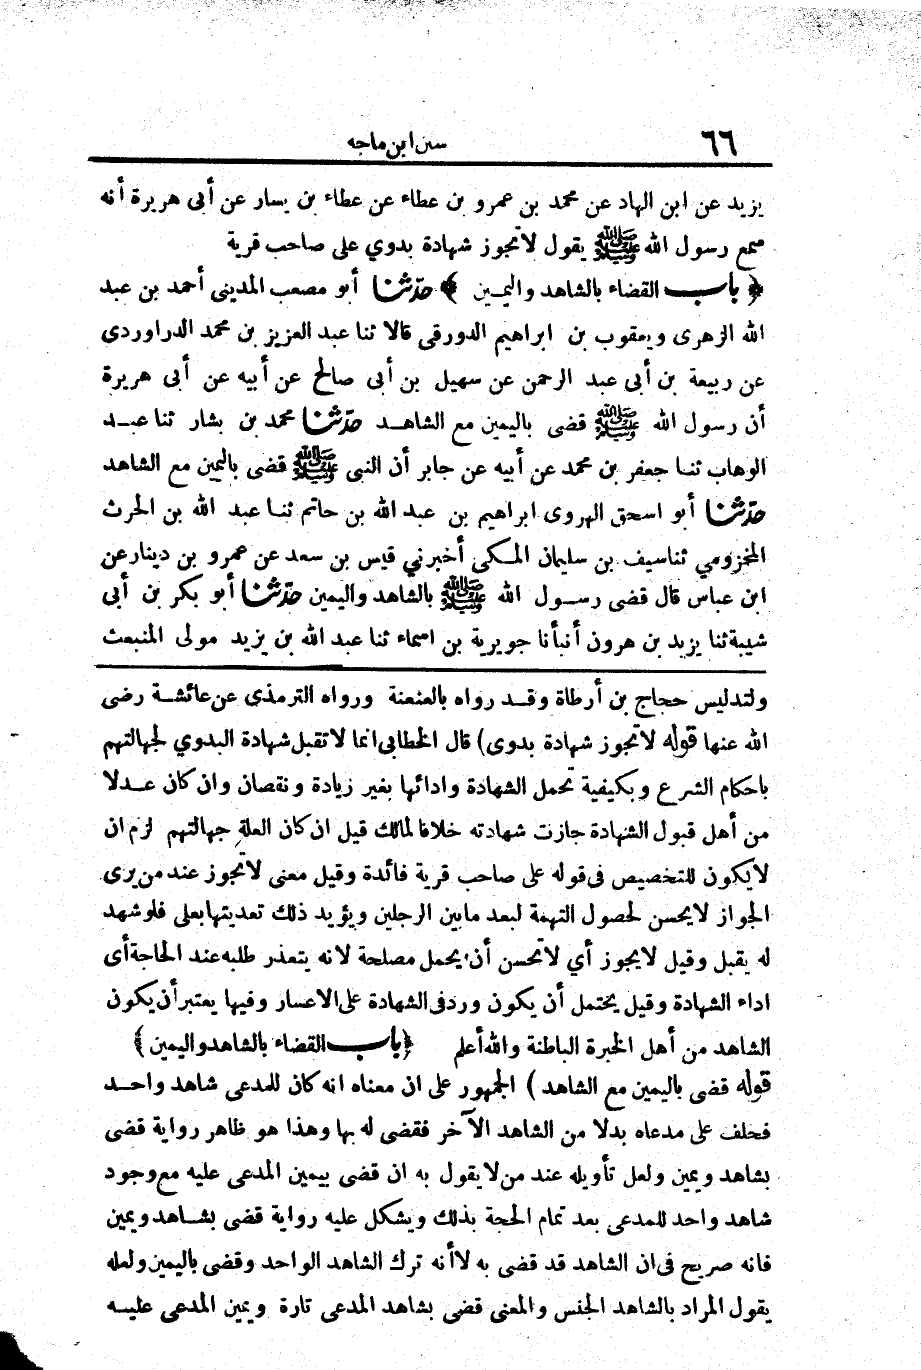 ٦٦ سنن ابن ماجه
يزيد عن ابن الهاد عن محمد بن عمرو بن عطاء عن عطاء بن يسار عن أبى هريرة أنه
سمع رسول الله ﷺ يقول لاتجوز شهادة بدوي على صاحب قرية
﴿ باب القضاء بالشاهد واليمين ﴾ حدّثنا أبو مصعب المدينى أحمد بن عبد
الله الزهرى ويعقوب بن ابراهيم الدورقى قالا ثنا عبد العزيز بن محمد الدراوردى
عن ربيعة بن أبى عبد الرحمن عن سهيل بن أبى صالح عن أبيه عن أبى هريرة
أن رسول الله ﷺ قضى باليمين مع الشاهد حدّثنا محمد بن بشار ثنا عبد
الوهاب ثنا جعفر بن محمد عن أبيه عن جابر أن النبى ﷺ قضى باليمين مع الشاهد
حدّثنا أبو اسحق الهروى ابراهيم بن عبد الله بن حاتم ثنا عبد الله بن الحرث
المخزومي ثنا سيف بن سليمان المكى أخبرني قيس بن سعد عن عمرو بن دينار عن
ابن عباس قال قضى رسول الله ﷺ بالشاهد واليمين حدّثنا أبو بكر بن أبى
شيبة ثنا يزيد بن هرون أنبأنا جويرية بن اسماء ثنا عبد الله بن يزيد مولى المنبعث
ولتدليس حجاج بن أرطاة وقد رواه بالعنعنة ورواه الترمذى عن عائشة رضى
الله عنها قوله لاتجوز شهادة بدوى) قال الخطابى انما لا تقبل شهادة البدوي لجهالتهم
باحكام الشرع وبكيفية تحمل الشهادة وادائها بغير زيادة ونقصان وان كان عدلا
من أهل قبول الشهادة جازت شهادته خلافا لمالك قيل ان كان العلة جهالتهم لزم ان
لايكون للتخصيص فى قوله على صاحب قرية فائدة وقيل معنى لاتجوز عند من يرى
الجواز لايحسن لحصول التهمة لبعد مابين الرجلين ويؤيد ذلك تعديتها بعلى فلو شهد
له يقبل وقيل لايجوز أي لاتحسن أن يحمل مصلحة لانه يتعذر طلبه عند الحاجة أى
اداء الشهادة وقيل يحتمل أن يكون ورد فى الشهادة على الاعسار وفيها يعتبر أن يكون
الشاهد من أهل الخبرة الباطنة والله أعلم ﴿باب القضاء بالشاهد واليمين﴾
قوله قضى باليمين مع الشاهد ) الجمهور على ان معناه انه كان للمدعى شاهد واحد
فحلف على مدعاه بدلا من الشاهد الآخر فقضى له بها وهذا هو ظاهر رواية قضى
بشاهد ويمين ولعل تأويله عند من لايقول به ان قضى بيمين المدعى عليه مع وجود
شاهد واحد للمدعى بعد تمام الحجة بذلك ويشكل عليه رواية قضى بشاهد ويمين
فانه صريح فى ان الشاهد قد قضى به لا أنه ترك الشاهد الواحد وقضى باليمين ولعله
يقول المراد بالشاهد الجنس والمعنى قضى بشاهد المدعى تارة ويمين المدعى عليه